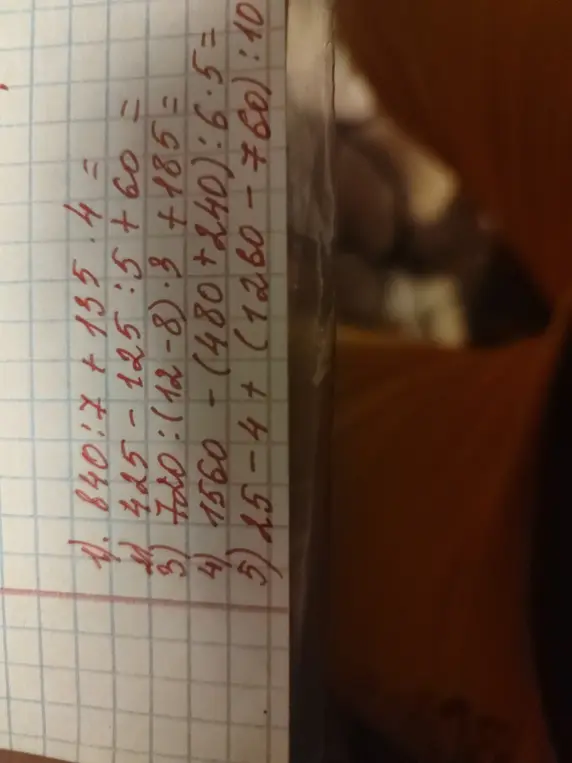 1). 840:7 + 135 · 4 =
2) 425 - 125 : 5 + 60 =
3) 720 : (12-8) · 3 + 185 =
4) 1560 - (480 + 240) : 6 · 5 =
5) 25 - 4 + (1260 - 760) : 10